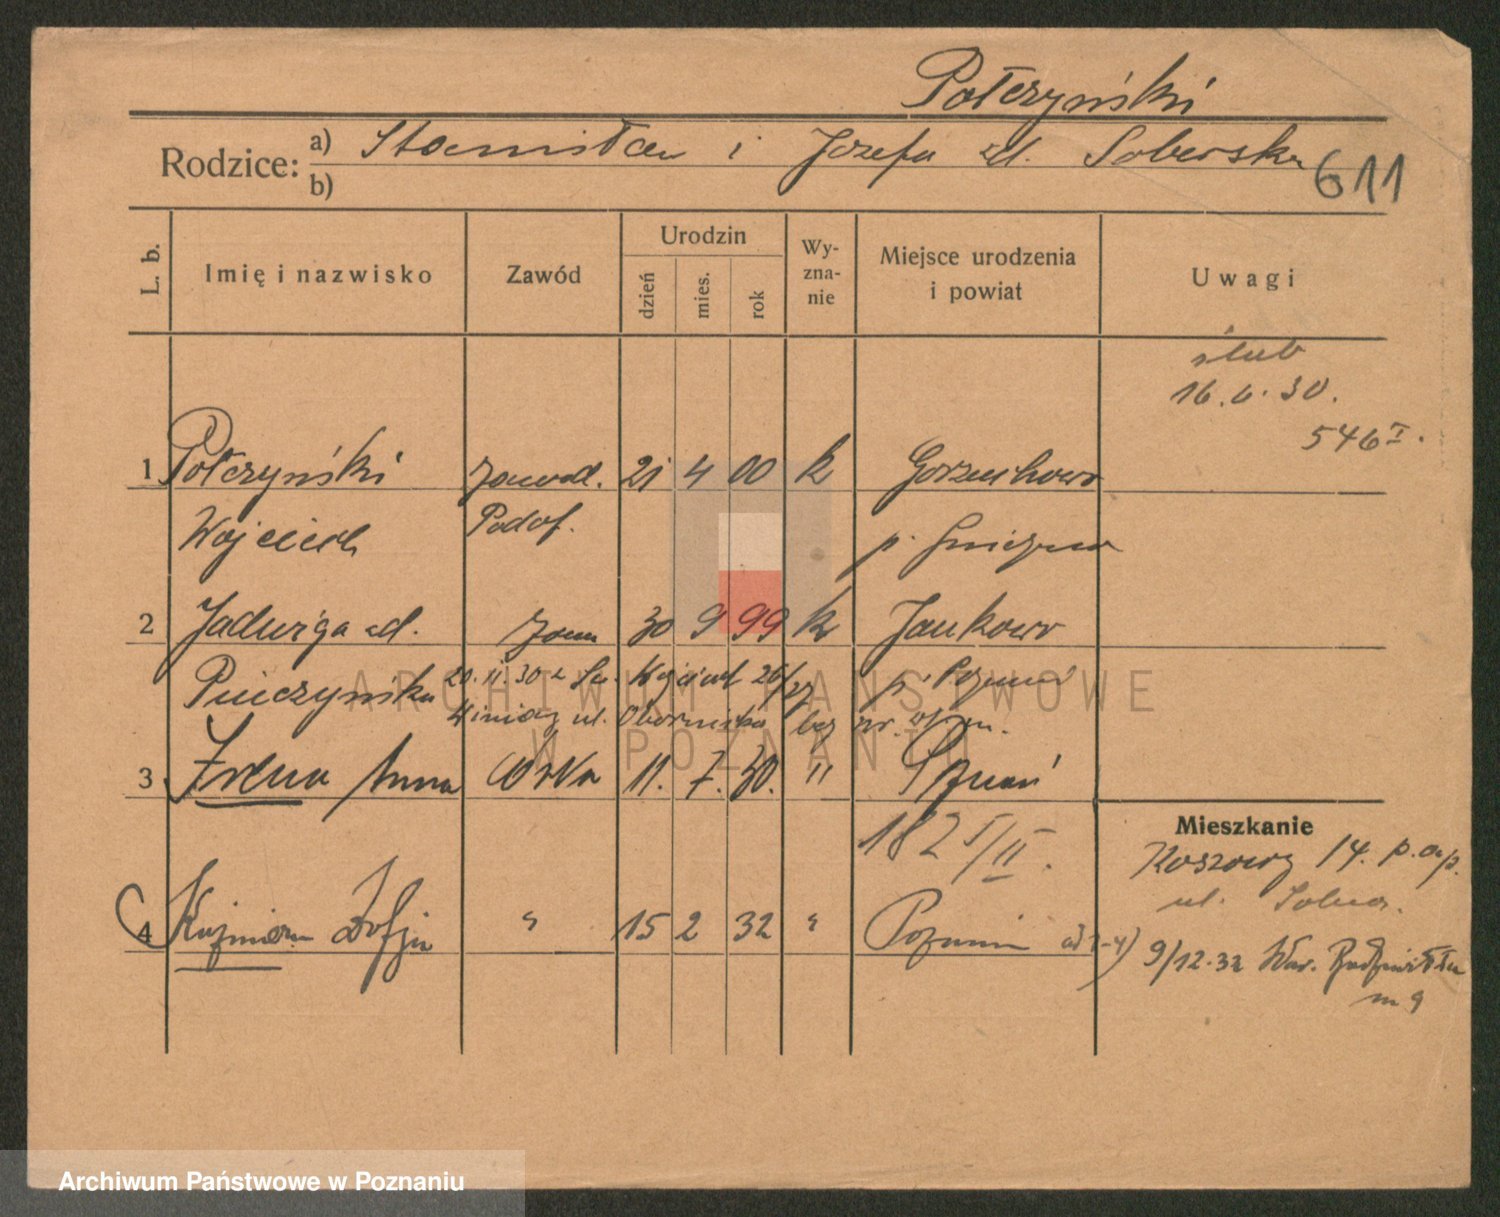 Połczyński
Rodzice: a) Stanisław i Józefa zd. Soberska
b)
611
L. b.
Imię i nazwisko
Zawód
Urodzin
dzień
mies.
rok
Wy-
zna-
nie
Miejsce urodzenia
i powiat
Uwagi
ślub
16.6.30.
546 I.
1 Połczyński zawod. 21 4 00 k
Wojciech Podof. p.
2 Jadwiga zd. żona 30 9 99 k Jankowo
20.11.30 z Św. Wojciech 26/27 p. Poznań
Winiary ul. Obornicka bez nr.
3 Irena Anna córka 11. 7. 30. " Poznań
182 I/II.
Mieszkanie
Koszary 14. p. a. p.
ul. Solna.
4 Kazimiera Zofja " 15 2 32 " Poznań ad 1-4)
9/12.32 War.
m 9
ARCHIWUM PAŃSTWOWE
W POZNANIU
Archiwum Państwowe w Poznaniu